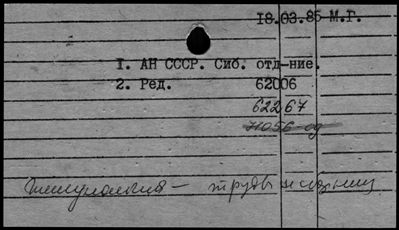 18.03.85 М.Г.
1. АН СССР. Сиб. отд-ние.
2. Ред. 62006
62267
71056-од
– труды и сборники